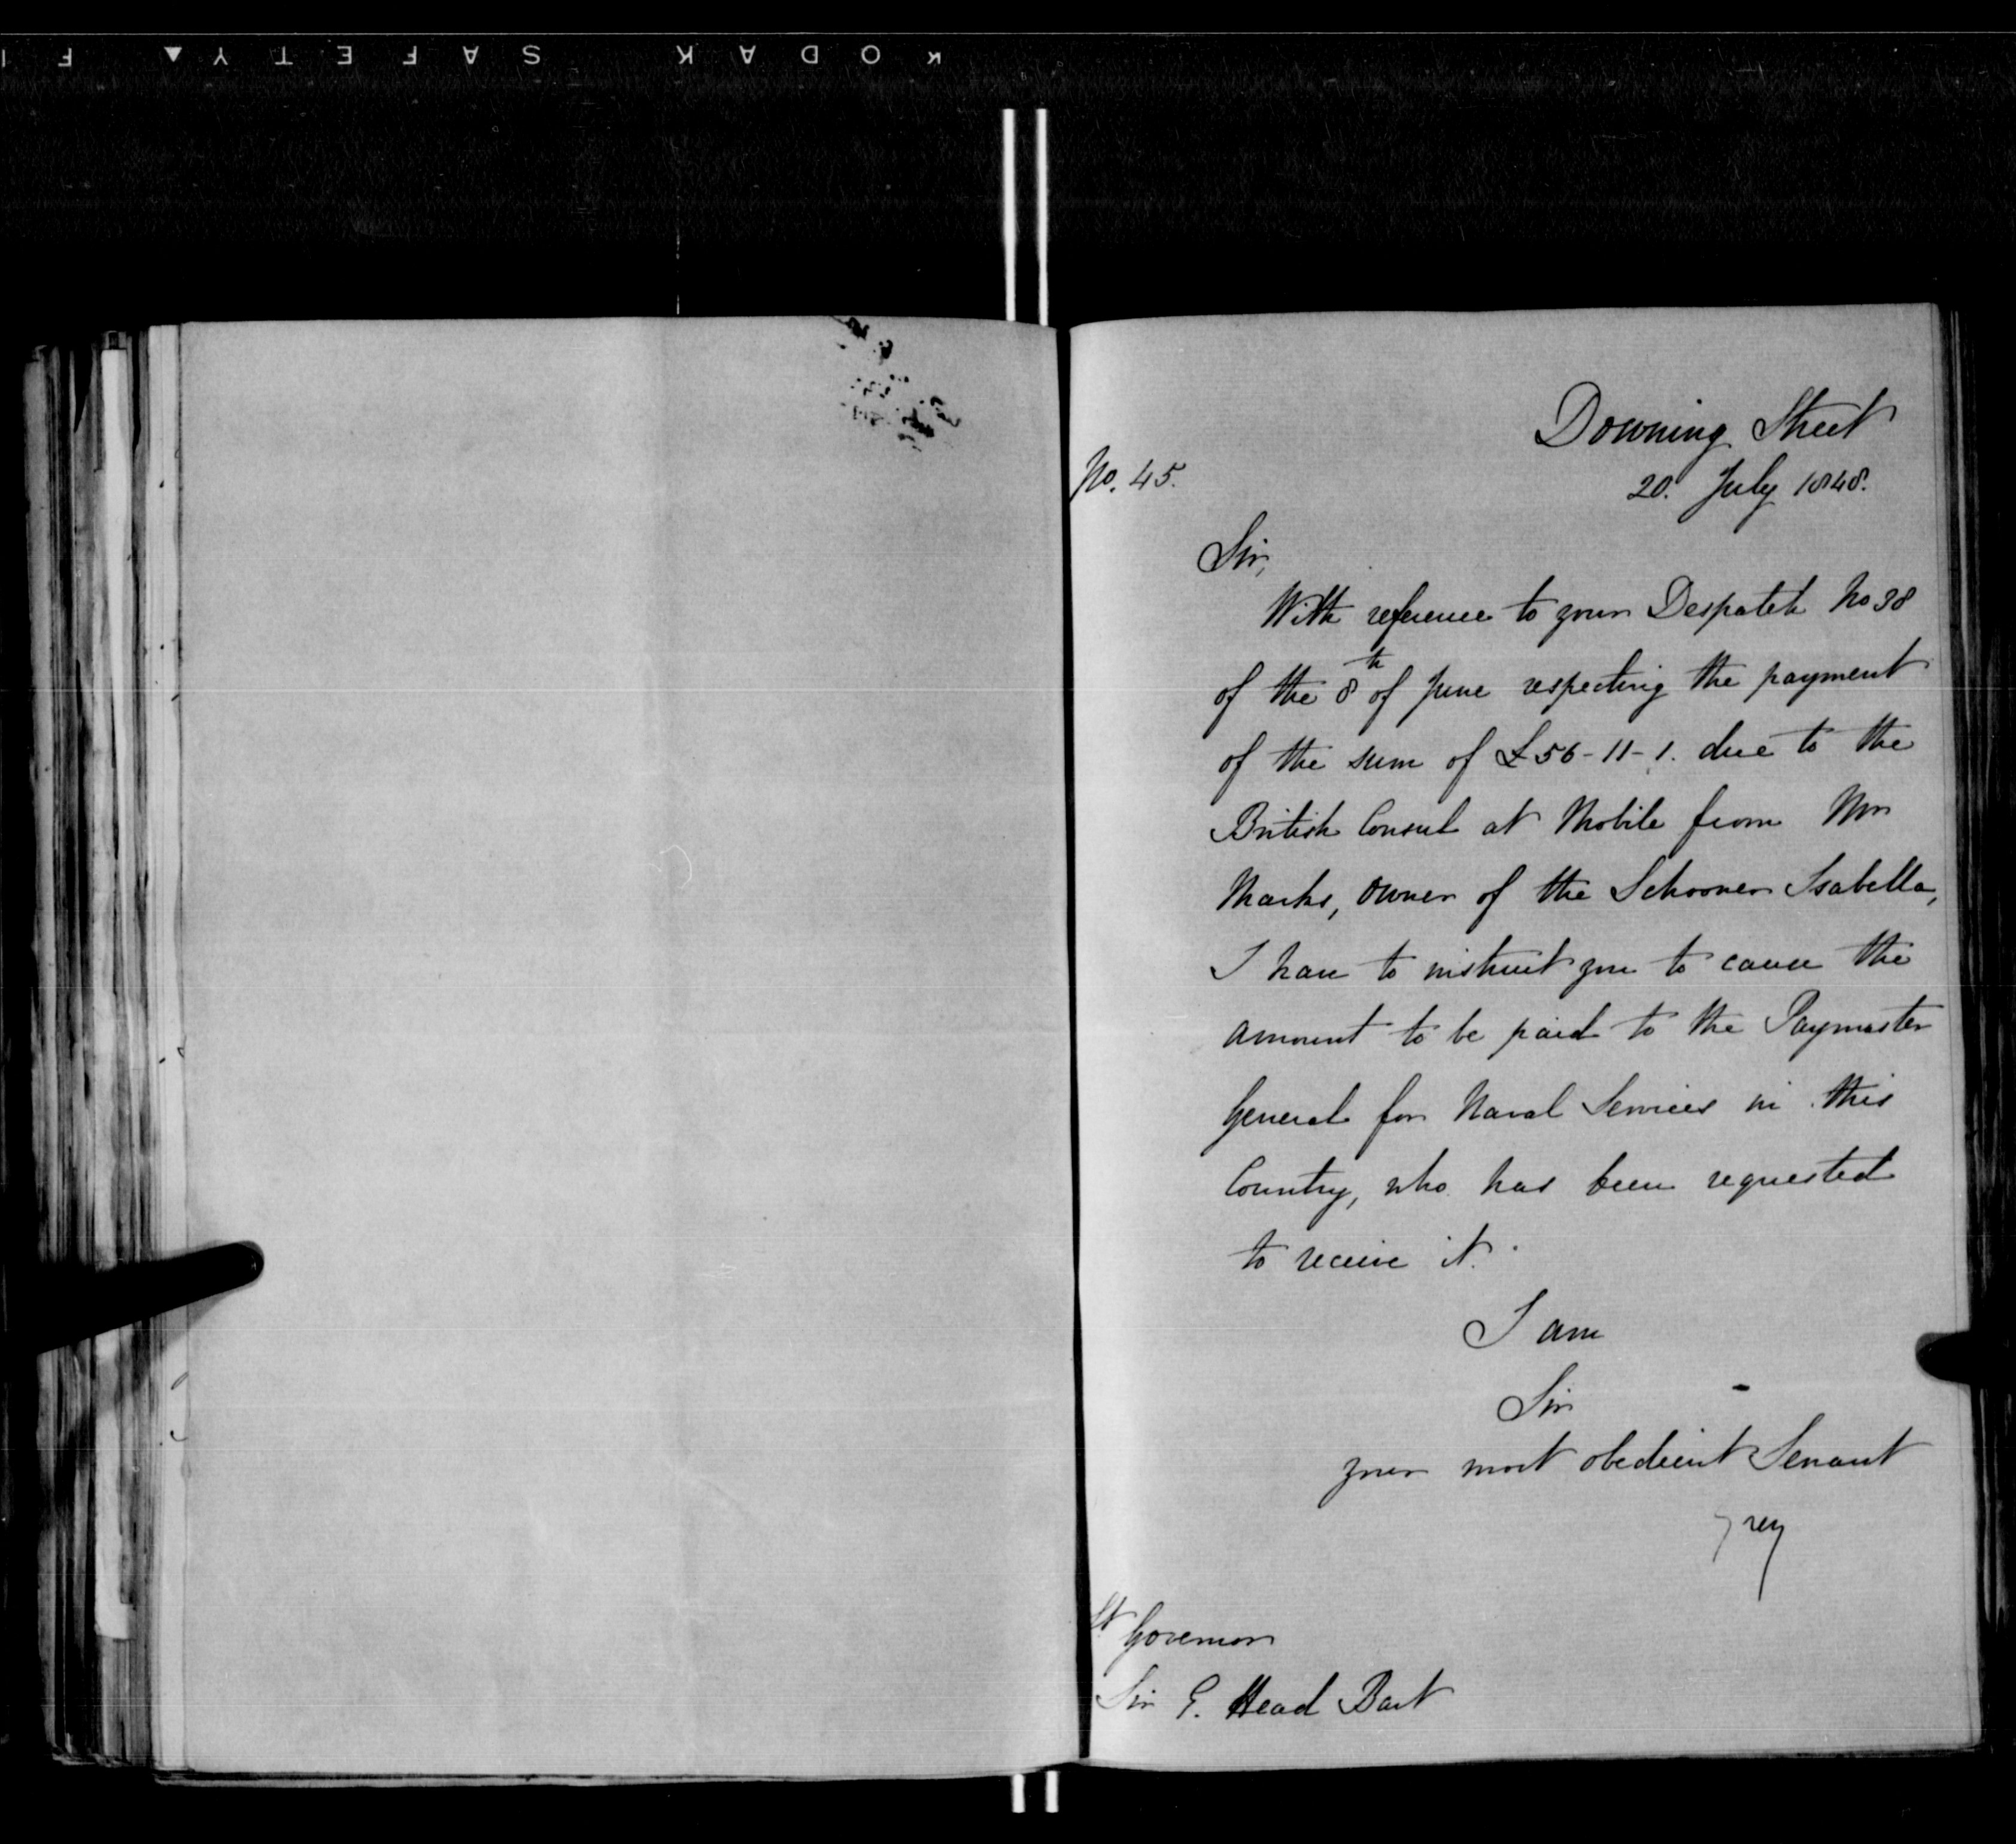 KODAK SAFETY ▲ F
Downing Street
No. 45.
20. July 1848.
Sir,
With reference to your Despatch No 38
of the 8th of June respecting the payment
of the sum of £56-11-1. due to the
British Consul at Mobile from Mr
Marks, owner of the Schooner Isabella,
I have to instruct you to cause the
amount to be paid to the Paymaster
General for Naval Services in this
Country, who has been requested
to receive it.
I am
Sir
your most obedient Servant
Grey
Lt Governor
Sir E. Head Bart